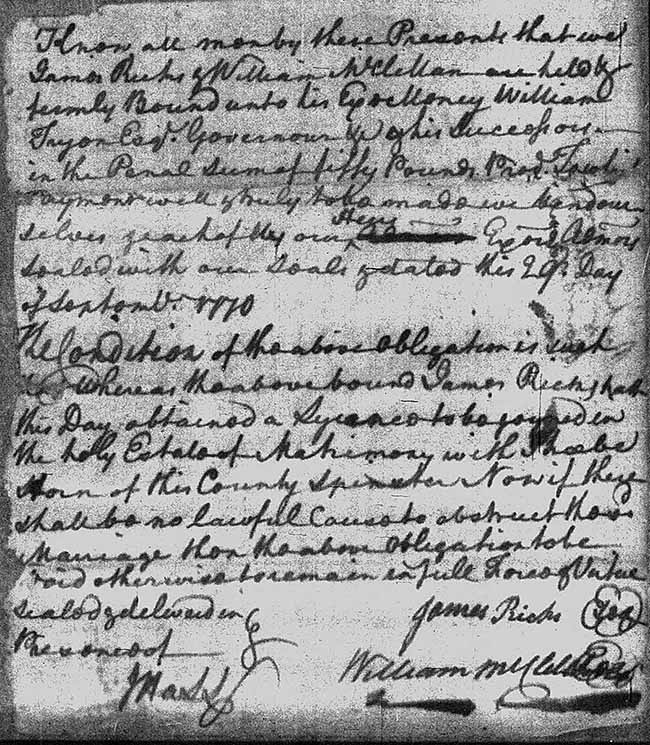 Know all men by these Presents that we
James Ricks & William McClellan are held &
firmly Bound unto his Excellency William
Tryon Esqr. Governour &c & his Successors
in the Penal Sum of fifty Pounds Procl.
Payment well & truly to be made we bind our
selves & each of us our Heirs Exors Admors
Sealed with our Seals & dated this 29th Day
of Septembr. 1770
The Condition of the above obligation is such
Whereas the above bound James Ricks hath
this Day obtained a Lycence to be joyned in
the holy Estate of Matrimony with Phoebe
Horn of this County Spinster Now if there
shall be no lawful Cause to obstruct the sd
Marriage then the above obligation to be
void otherwise to remain in full Force & Virtue
Sealed & delivered in
Presence of
James Ricks
William McClellan